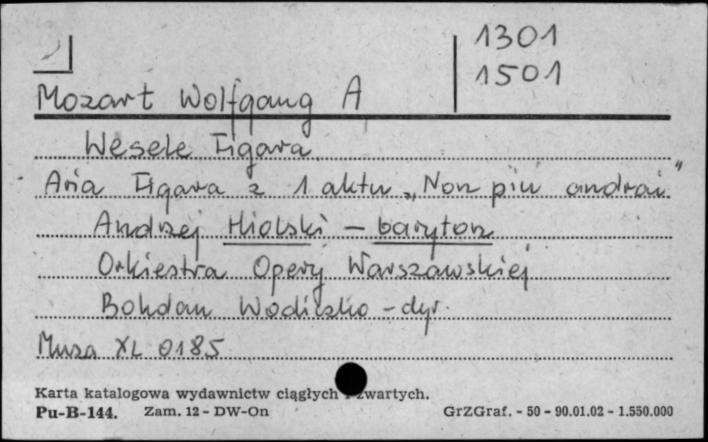 1301
1501
Mozart Wolfgang A
Wesele Figara
Aria Figara z 1 aktu „Non piu andrai"
Andrzej Hiolski – baryton
Orkiestra Opery Warszawskiej
Bohdan Wodiczko – dyr.
Muza XL 0185
Karta katalogowa wydawnictw ciągłych i zwartych.
Pu-B-144. Zam. 12 - DW-On GrZGraf. - 50 - 90.01.02 - 1.550.000